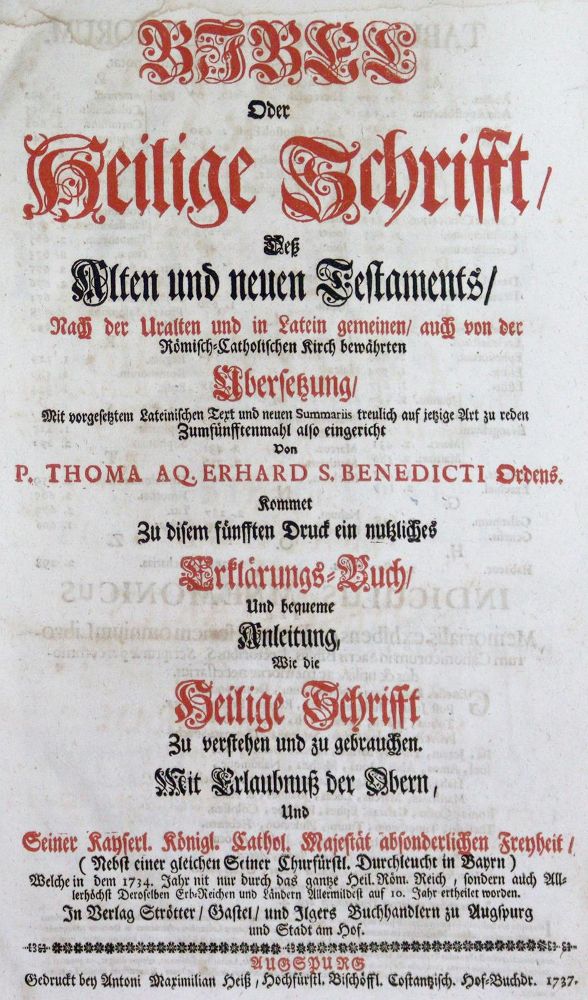 BIBEL
Oder
Heilige Schrifft/
Deß
Alten und neuen Testaments/
Nach der Uralten und in Latein gemeinen/ auch von der
Römisch-Catholischen Kirch bewährten
Ubersetzung/
Mit vorgesetztem Lateinischen Text und neuen Summariis treulich auf jetzige Art zu reden
Zumfünfftenmahl also eingericht
Von
P. THOMA AQ. ERHARD S. BENEDICTI Ordens.
Kommet
Zu disem fünfften Druck ein nutzliches
Erklärungs-Buch/
Und bequeme
Anleitung,
Wie die
Heilige Schrifft
Zu verstehen und zu gebrauchen.
Mit Erlaubnuß der Obern,
Und
Seiner Kayserl. Königl. Cathol. Majestät absonderlichen Freyheit/
(Nebst einer gleichen Seiner Churfürstl. Durchleucht in Bayrn)
Welche in dem 1734. Jahr nit nur durch das gantze Heil. Röm. Reich, sondern auch All-
lerhöchst Deroselben Erb-Reichen und Ländern Allermildest auf 10. Jahr ertheilet worden.
In Verlag Strötter/ Gastel/ und Ilgers Buchhandlern zu Augspurg
und Stadt am Hof.
AUGSPUNG
Gedruckt bey Antoni Maximilian Heiß, Hochfürstl. Bischöffl. Costantzisch. Hof-Buchdr. 1737.